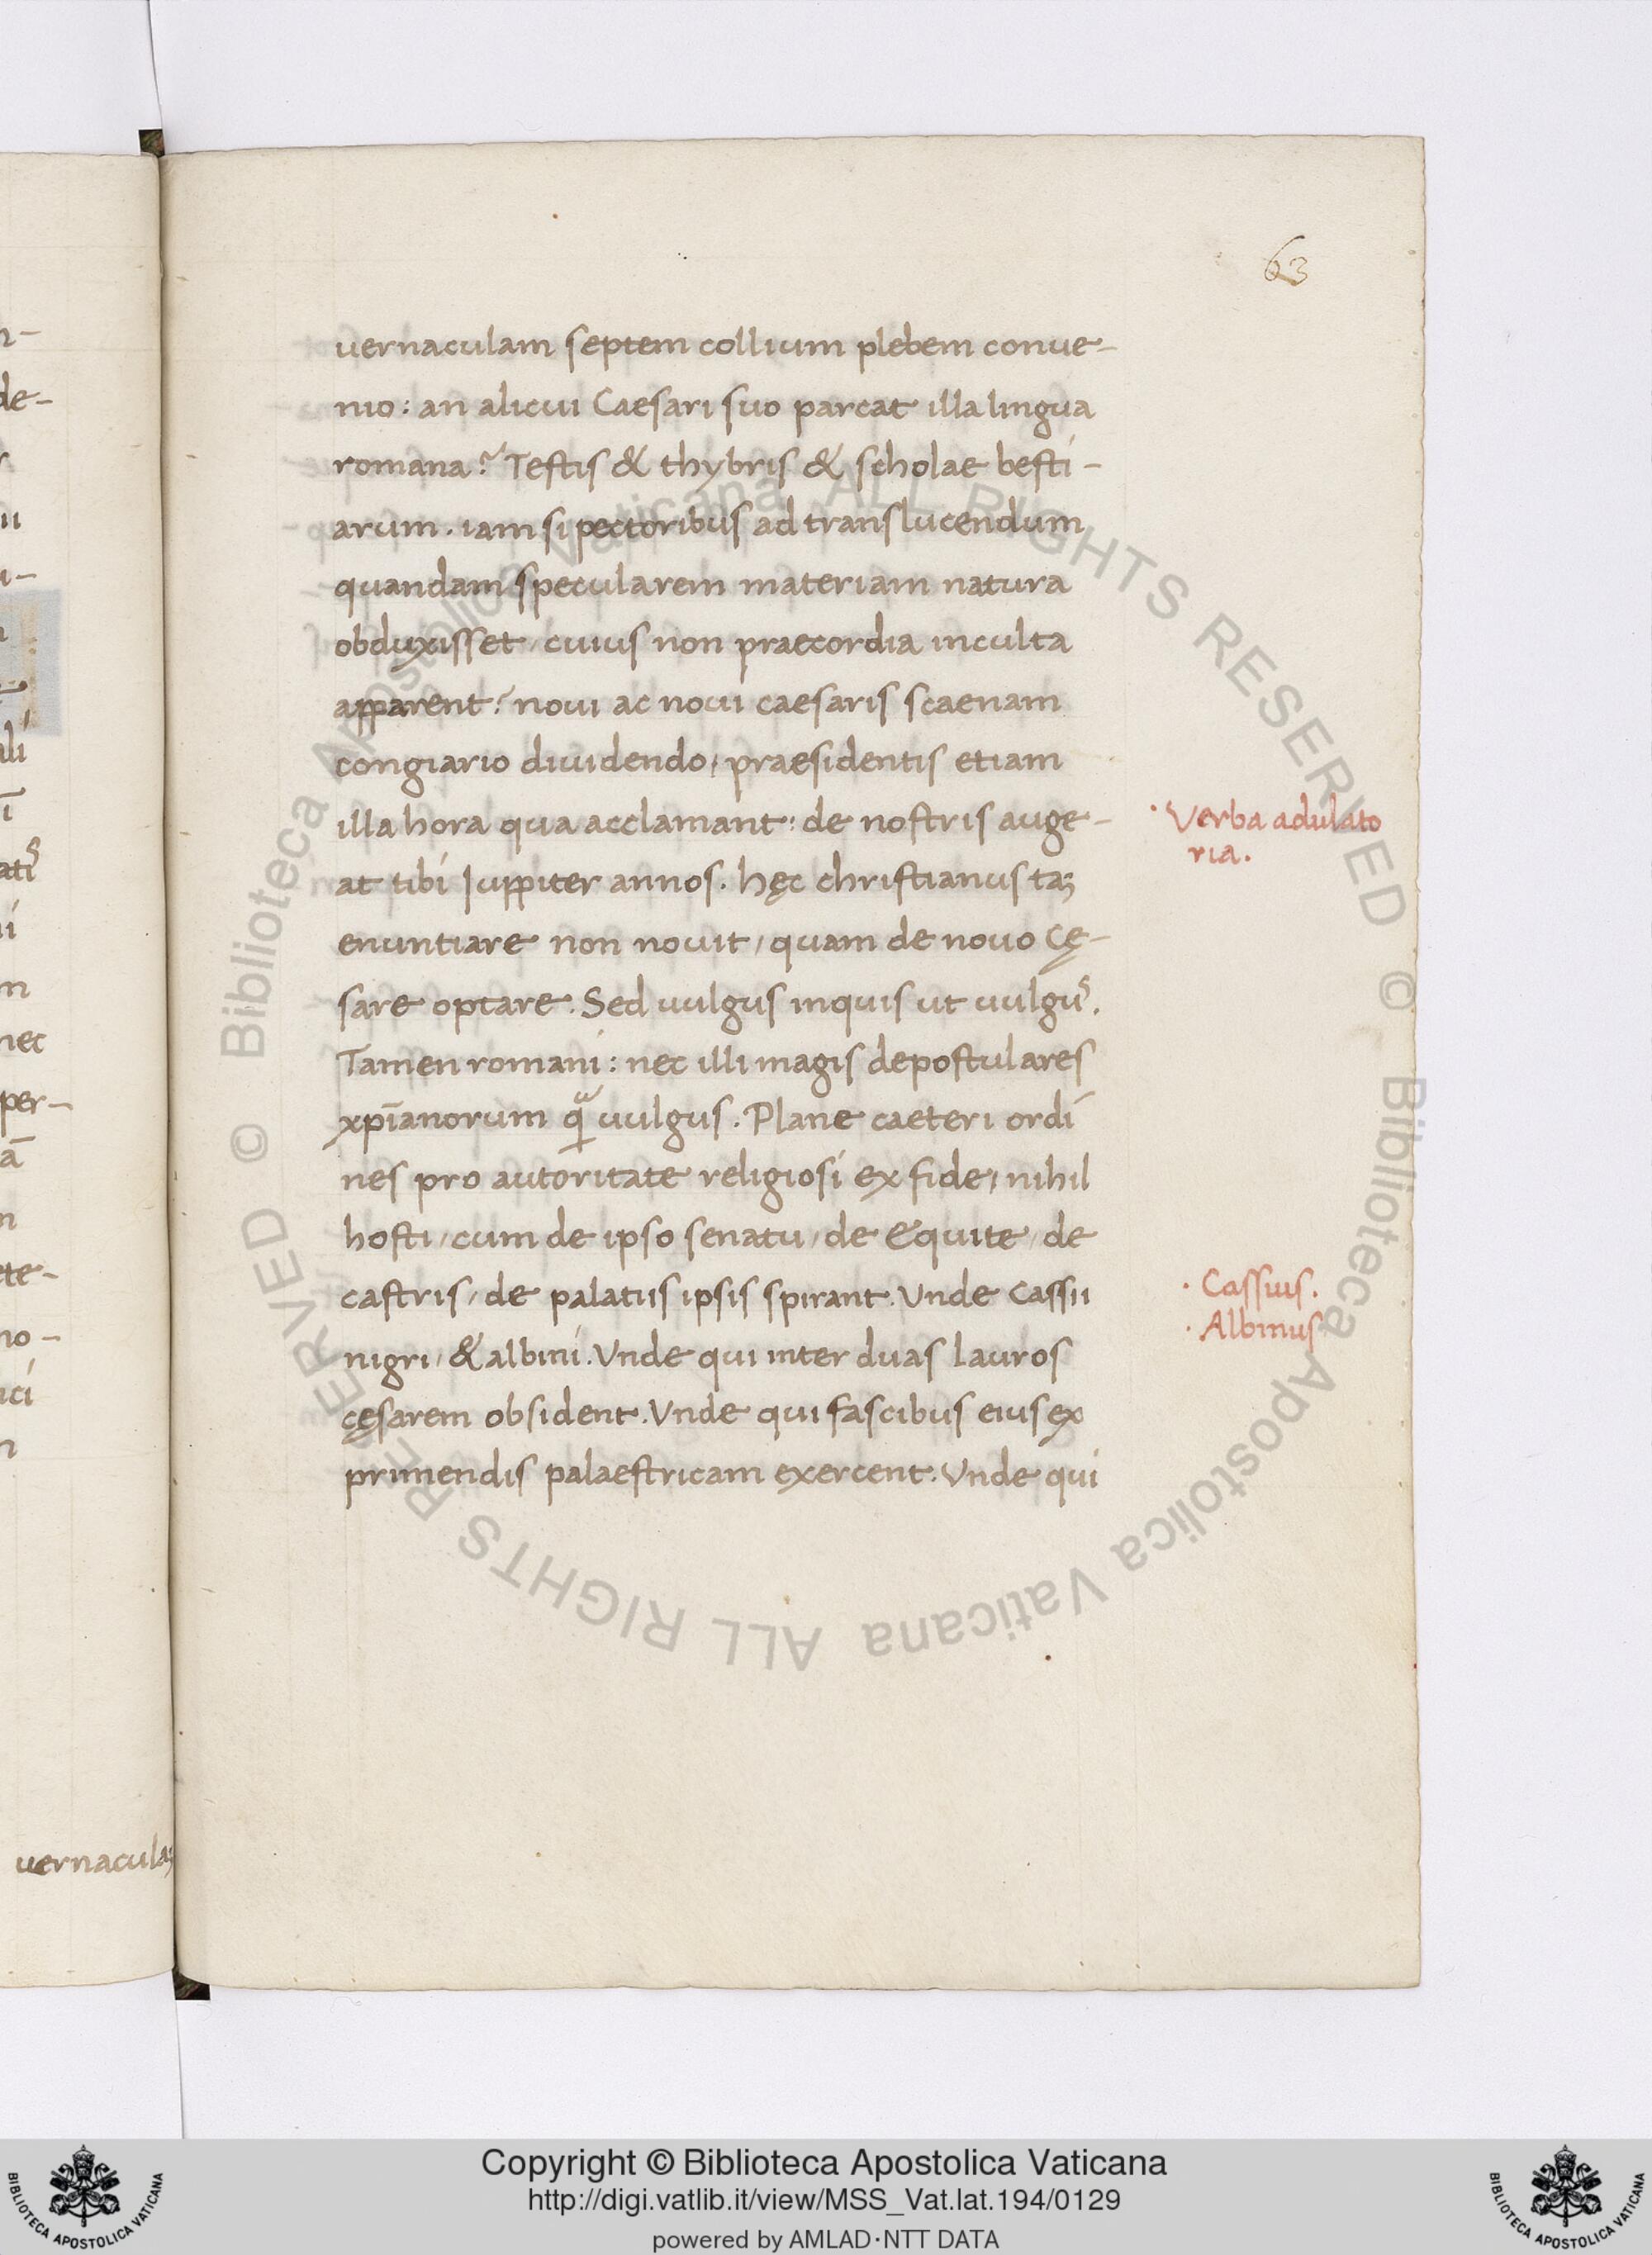 63
uernaculam septem collium plebem conue-
nio: an alicui Caesari suo parcat illa lingua
romana? Testis & thybris & scholae besti-
arum. iam si pectoribus ad translucendum
quandam specularem materiam natura
obduxisset / cuius non praecordia inculta
apparent? noui ac noui caesaris scaenam
congiario diuidendo / praesidentis etiam
illa hora qua acclamant: de nostris auge-
Verba adulato
ria.
at tibi Iuppiter annos. hęc christianus taꝫ
enuntiare non nouit / quam de nouo cę-
sare optare. Sed uulgus inquis ut uulgus.
Tamen romani: nec illi magis depostulares
xp̄ianorum qᷓ uulgus. Plane caeteri ordi
nes pro autoritate religiosi ex fide / nihil
hosti / cum de ipso senatu / de equite / de
castris / de palatiis ipsis spirant. Vnde Cassii
Cassius.
nigri / & albini. Vnde qui inter duas lauros
Albinus
cęsarem obsident. Vnde qui fascibus eius ex
primendis palaestricam exercent. Vnde qui
uernaculaꝫ
© Biblioteca Apostolica Vaticana ALL RIGHTS RESERVED © Biblioteca Apostolica Vaticana ALL RIGHTS RESERVED
Copyright © Biblioteca Apostolica Vaticana
http://digi.vatlib.it/view/MSS_Vat.lat.194/0129
powered by AMLAD·NTT DATA
BIBLIOTECA APOSTOLICA VATICANA
BIBLIOTECA APOSTOLICA VATICANA